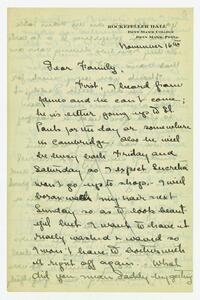 ROCKEFELLER HALL
BRYN MAWR COLLEGE
BRYN MAWR, PENNA.
November 16th
Dear Family,
First, I heard from
James and he can't come;
he is either going up to St.
Pauls for the day or somewhere
in Cambridge. Also he will
be busy both Friday and
Saturday so I expect Lucretia
won't go up to shop. I will
my hair next
Sunday so as to look beaut
iful but I want to have it
nicely washed & waved so
I won't have to bother with
it right off again. What
did you mean Daddy by